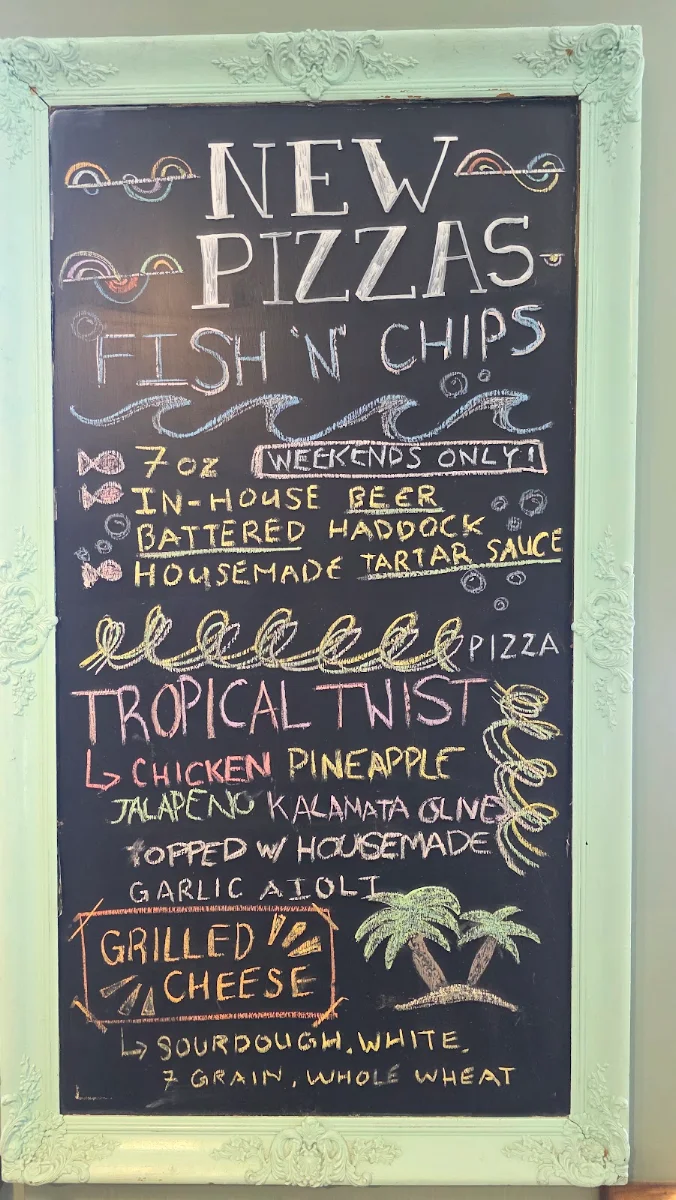 NEW
PIZZAS
FISH "N" CHIPS
7 oz WEEKENDS ONLY!
IN-HOUSE BEER
BATTERED HADDOCK
HOUSEMADE TARTAR SAUCE
PIZZA
TROPICAL TWIST
CHICKEN PINEAPPLE
JALAPENO KALAMATA OLIVE
TOPPED W/ HOUSEMADE
GARLIC AIOLI
GRILLED
CHEESE
SOURDOUGH, WHITE,
7 GRAIN, WHOLE WHEAT